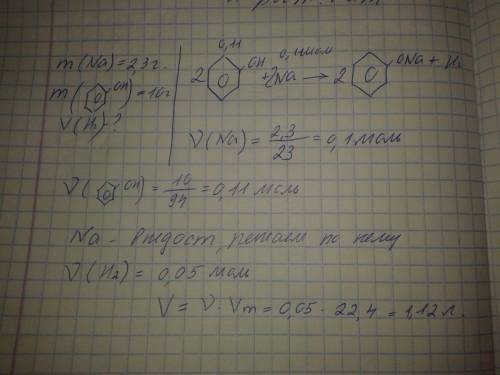 m(Na)=2,3г.
m(OH)=10г
V(H₂)-?
0,11 0,1моль
2 OH + 2Na → 2 ONa + H₂
ν(Na) = 2,3/23 = 0,1 моль
ν(OH) = 10/94 = 0,11 моль
Na - в недост, решаем по нему
ν(H₂) = 0,05 моль
V = ν · Vm = 0,05 · 22,4 = 1,12 л.